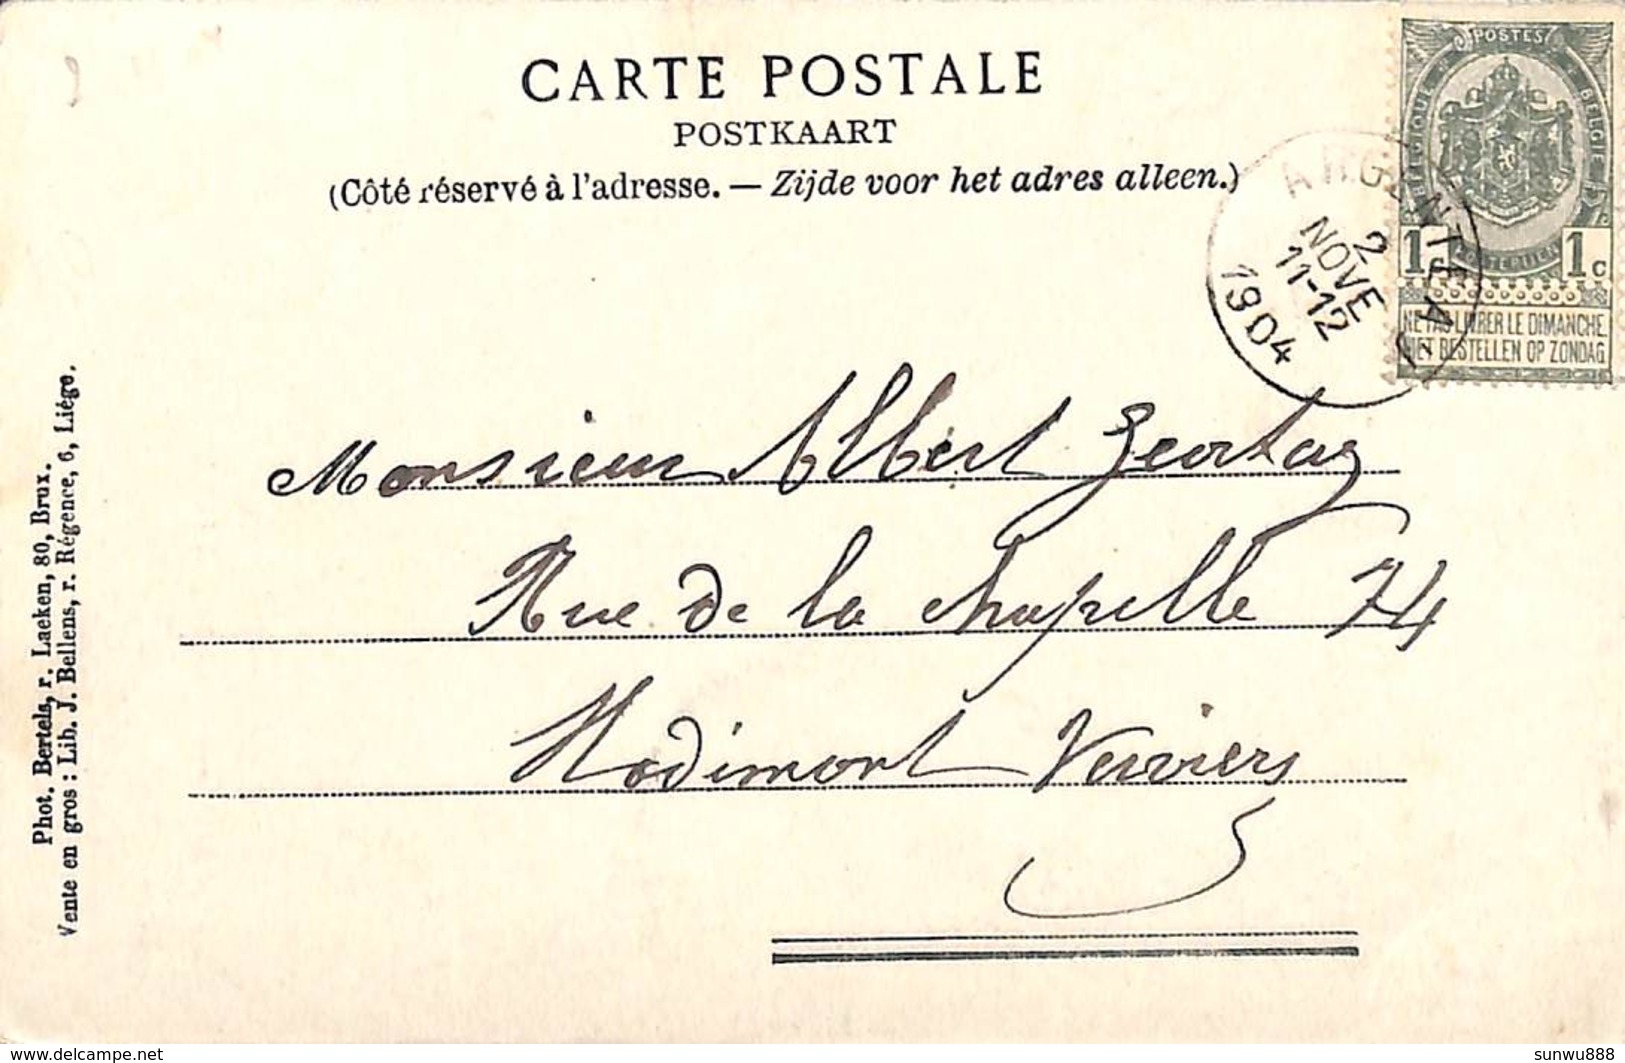 CARTE POSTALE
POSTKAART
(Côté réservé à l'adresse. — Zijde voor het adres alleen.)
POSTES
BELGIQUE
BELGIE
POSTERIJEN
1c 1c
NE PAS LIVRER LE DIMANCHE
NIET BESTELLEN OP ZONDAG
ARGENTEAU
2
NOVE
11-12
1904
Monsieur Albert
Rue de la Chapelle 74
Hodimont Verviers
Phot. Bertels, r. Laeken, 80, Brux.
Vente en gros : Lib. J. Bellens, r. Régence, 6, Liége.
www.delcampe.net
sunwu888